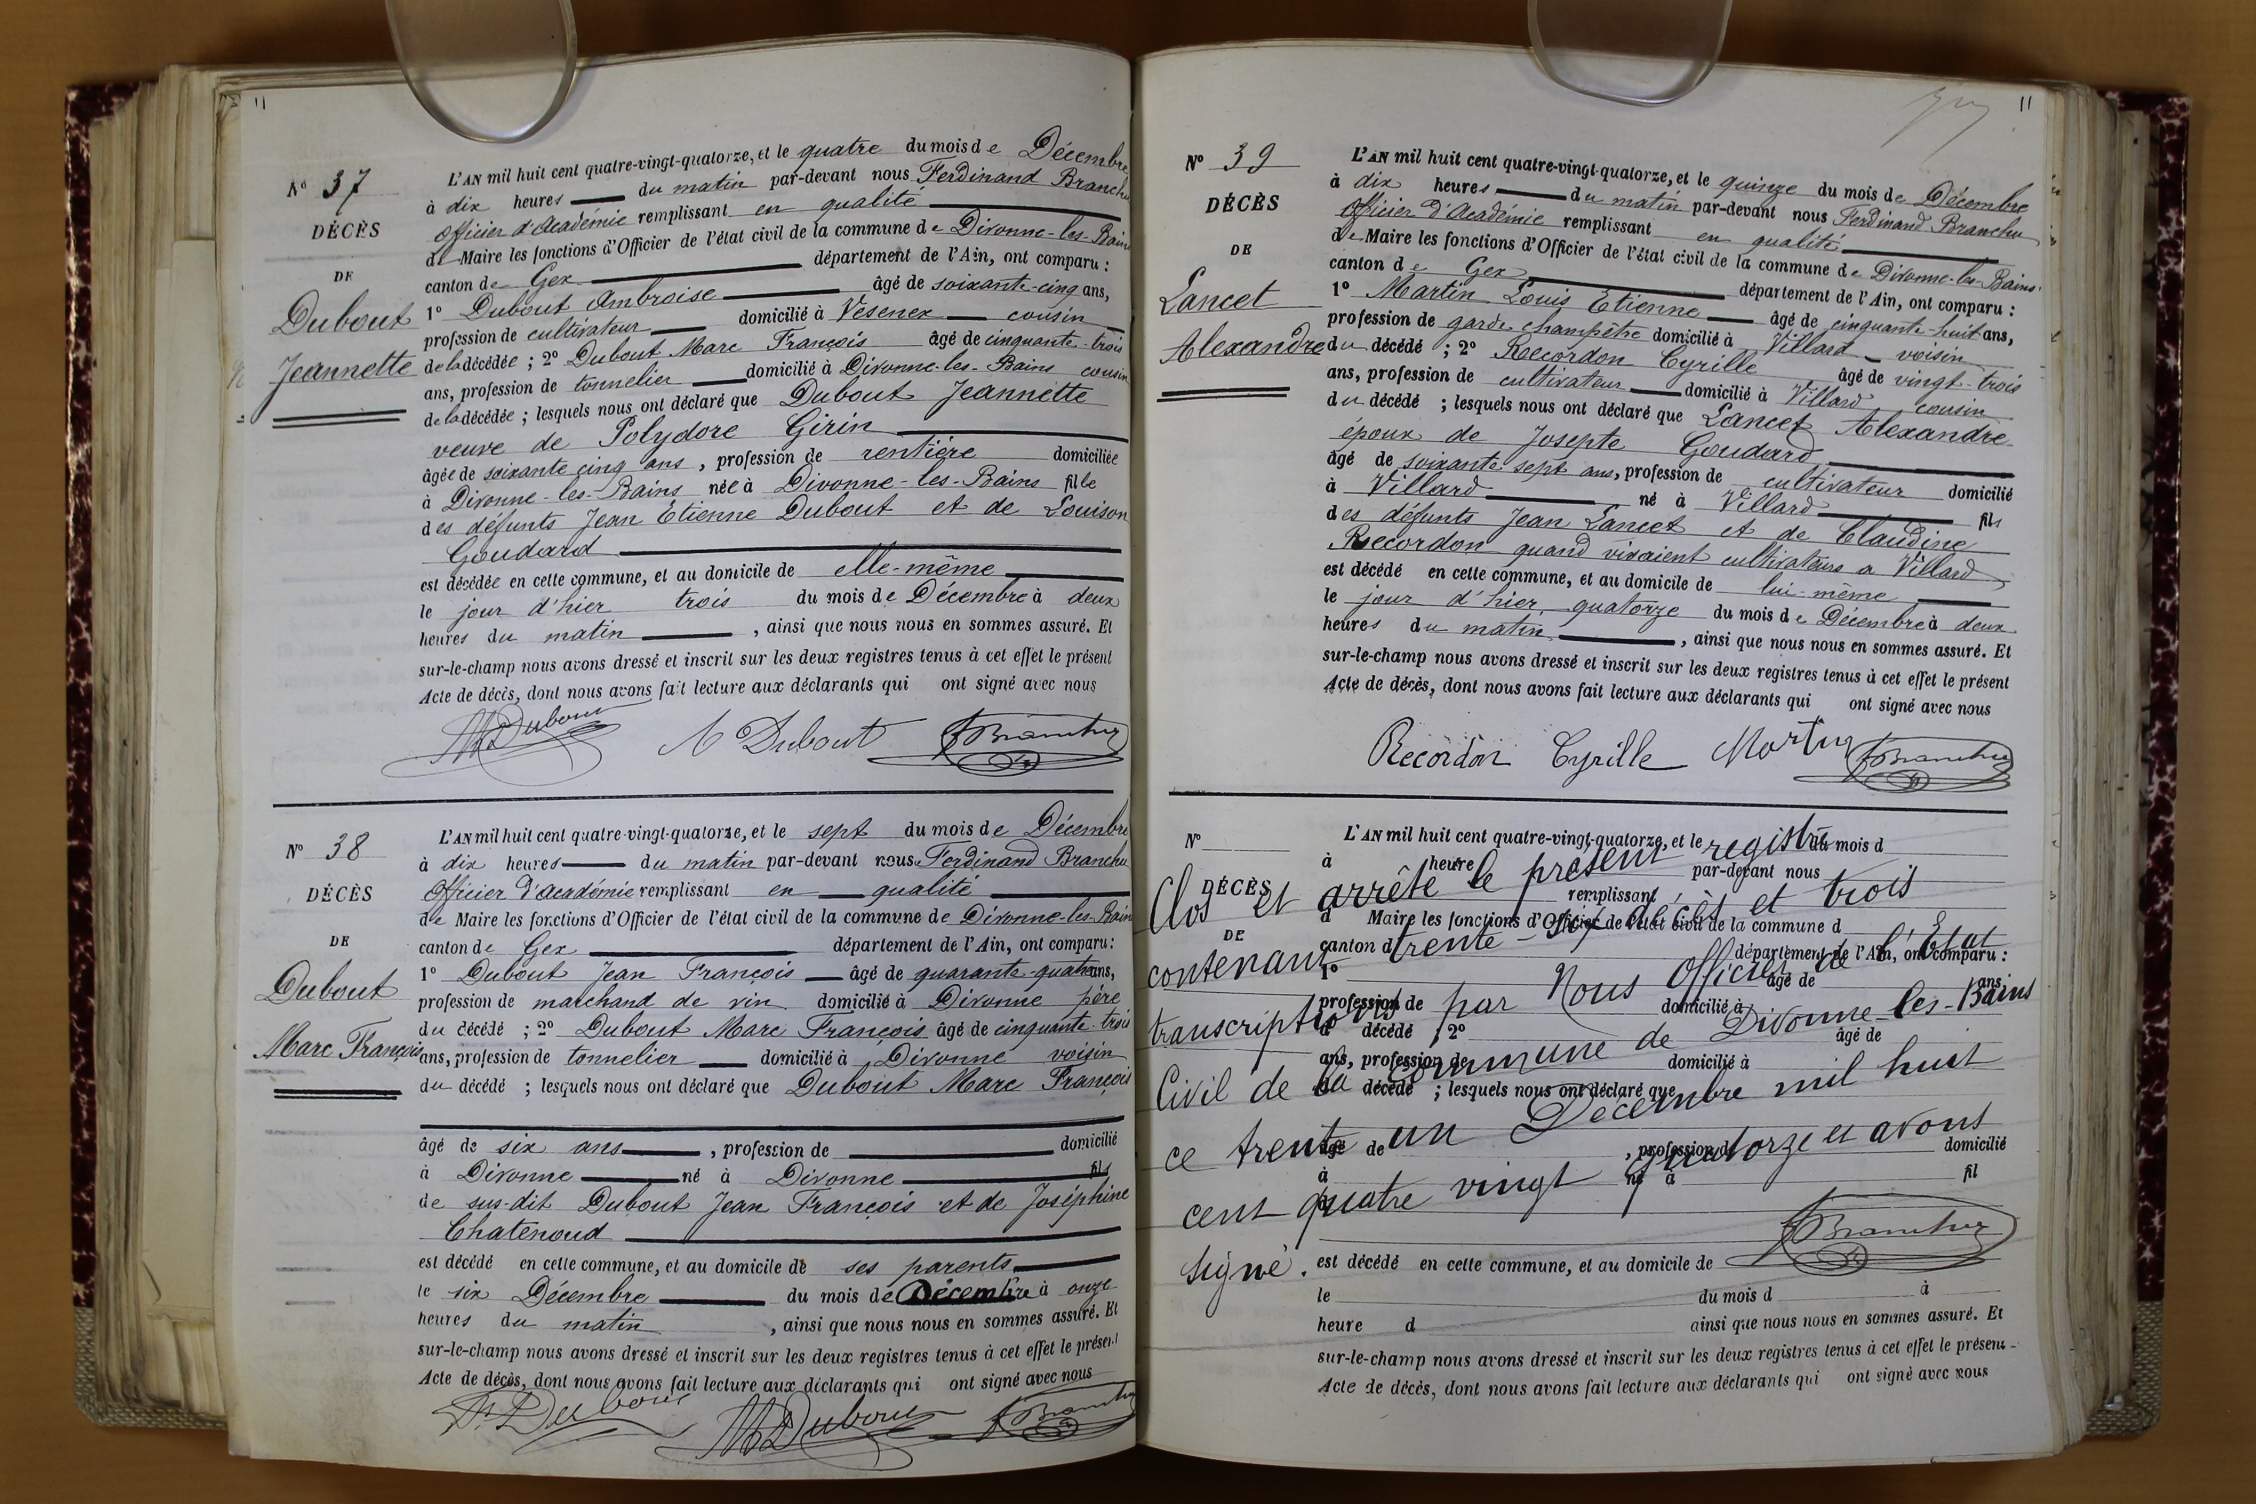 11
N° 37
DÉCÈS
DE
Dubout
Jeannette
L'AN mil huit cent quatre-vingt-quatorze, et le quatre du mois de Décembre
à dix heures du matin par-devant nous Ferdinand Branchu
Officier d'Académie remplissant en qualité
de Maire les fonctions d'Officier de l'état civil de la commune de Divonne-les-Bains
canton de Gex département de l'Ain, ont comparu :
1° Dubout Ambroise âgé de soixante-cinq ans,
profession de cultivateur domicilié à Vesenex cousin
de la décédée ; 2° Dubout Marc François âgé de cinquante-trois
ans, profession de tonnelier domicilié à Divonne-les-Bains cousin
de la décédée ; lesquels nous ont déclaré que Dubout Jeannette
veuve de Polydore Girin
âgée de soixante cinq ans, profession de rentière domiciliée
à Divonne-les-Bains née à Divonne-les-Bains fille
des défunts Jean Etienne Dubout et de Louison
Goudard
est décédée en cette commune, et au domicile de elle-même
le jour d'hier trois du mois de Décembre à deux
heures du matin , ainsi que nous nous en sommes assuré. Et
sur-le-champ nous avons dressé et inscrit sur les deux registres tenus à cet effet le présent
Acte de décès, dont nous avons fait lecture aux déclarants qui ont signé avec nous
MDubout A Dubout FBranchu
N° 38
DÉCÈS
DE
Dubout
Marc François
L'AN mil huit cent quatre-vingt-quatorze, et le sept du mois de Décembre
à dix heures du matin par-devant nous Ferdinand Branchu
Officier d'Académie remplissant en qualité
de Maire les fonctions d'Officier de l'état civil de la commune de Divonne-les-Bains
canton de Gex département de l'Ain, ont comparu :
1° Dubout Jean François âgé de quarante-quatre ans,
profession de marchand de vin domicilié à Divonne père
du décédé ; 2° Dubout Marc François âgé de cinquante-trois
ans, profession de tonnelier domicilié à Divonne voisin
du décédé ; lesquels nous ont déclaré que Dubout Marc François
âgé de six ans , profession de domicilié
à Divonne né à Divonne fils
de sus-dit Dubout Jean François et de Joséphine
Chatenoud
est décédé en cette commune, et au domicile de ses parents
le six Décembre du mois de Décembre à onze
heures du matin , ainsi que nous nous en sommes assuré. Et
sur-le-champ nous avons dressé et inscrit sur les deux registres tenus à cet effet le présent
Acte de décès, dont nous avons fait lecture aux déclarants qui ont signé avec nous
Dubout MDubout FBranchu
11
N° 39
DÉCÈS
DE
Lancet
Alexandre
L'AN mil huit cent quatre-vingt-quatorze, et le quinze du mois de Décembre
à dix heures du matin par-devant nous Ferdinand Branchu
Officier d'Académie remplissant en qualité
de Maire les fonctions d'Officier de l'état civil de la commune de Divonne-les-Bains
canton de Gex département de l'Ain, ont comparu :
1° Martin Louis Etienne âgé de cinquante-huit ans,
profession de garde champêtre domicilié à Villard voisin
du décédé ; 2° Recordon Cyrille âgé de vingt-trois
ans, profession de cultivateur domicilié à Villard cousin
du décédé ; lesquels nous ont déclaré que Lancet Alexandre
époux de Josepte Goudard
âgé de soixante sept ans, profession de cultivateur domicilié
à Villard né à Villard fils
des défunts Jean Lancet et de Claudine
Recordon quand vivaient cultivateurs a Villard
est décédé en cette commune, et au domicile de lui-même
le jour d'hier quatorze du mois de Décembre à deux
heures du matin , ainsi que nous nous en sommes assuré. Et
sur-le-champ nous avons dressé et inscrit sur les deux registres tenus à cet effet le présent
Acte de décès, dont nous avons fait lecture aux déclarants qui ont signé avec nous
Recordon Cyrille Martin FBranchu
N°
DÉCÈS
DE
L'AN mil huit cent quatre-vingt-quatorze, et le du mois d
à heure par-devant nous
remplissant
d Maire les fonctions d'Officier de l'état civil de la commune d
canton d département de l'Ain, ont comparu :
1° âgé de ans,
profession de domicilié à
d décédé ; 2° âgé de
ans, profession de domicilié à
d décédé ; lesquels nous ont déclaré que
âgé de , profession d domicilié
à né à fil
est décédé en cette commune, et au domicile de
le du mois d à
heure d ainsi que nous nous en sommes assuré. Et
sur-le-champ nous avons dressé et inscrit sur les deux registres tenus à cet effet le présent
Acte de décès, dont nous avons fait lecture aux déclarants qui ont signé avec nous
Clos et arrêté le présent registre
contenant trente-six décès et trois
transcriptions par Nous Officier de l'Etat
Civil de la Commune de Divonne-les-Bains
ce trente un Décembre mil huit
cent quatre vingt quatorze et avons
signé.
FBranchu